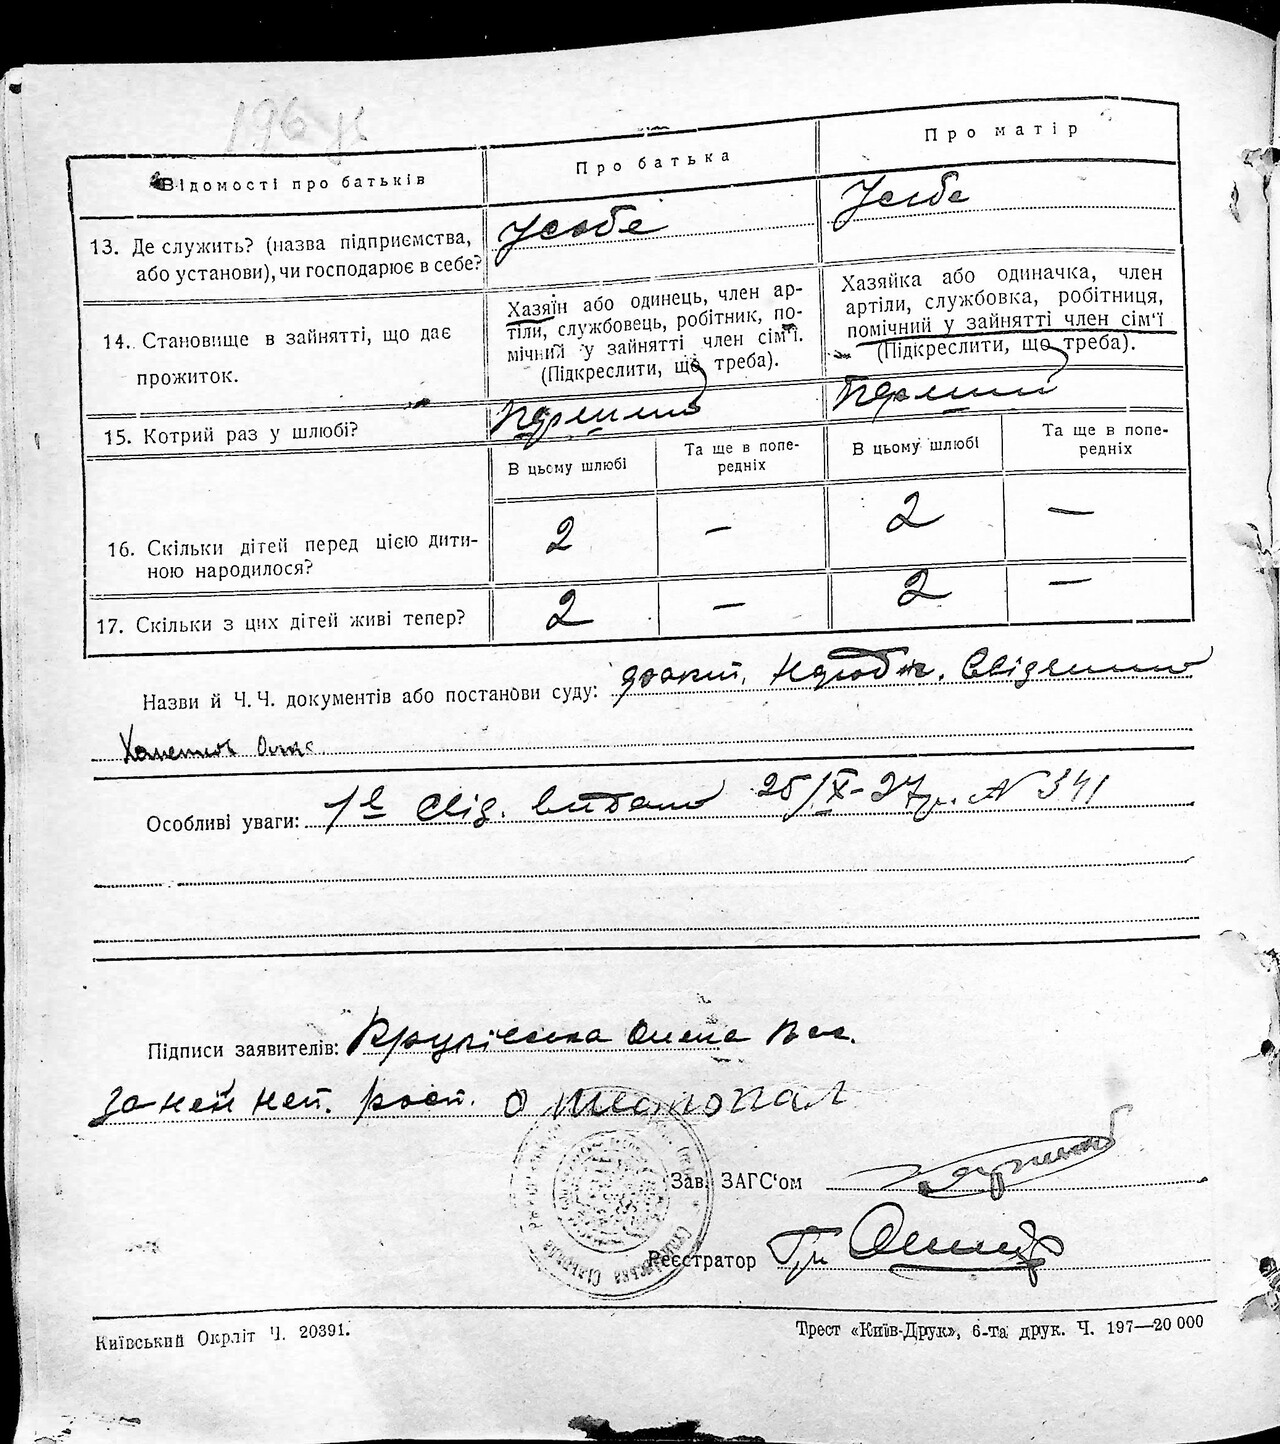 196
Відомості про батьків
Про батька
Про матір
13. Де служить? (назва підприємства,
або установи), чи господарює в себе?
У себе
У себе
14. Становище в зайнятті, що дає
прожиток.
Хазяїн або одинець, член ар-
тілі, службовець, робітник, по-
мічний у зайнятті член сім'ї.
(Підкреслити, що треба).
Хазяйка або одиначка, член
артілі, службовка, робітниця,
помічний у зайнятті член сім'ї
(Підкреслити, що треба).
15. Котрий раз у шлюбі?
В цьому шлюбі
Та ще в попе-
редніх
В цьому шлюбі
Та ще в попе-
редніх
16. Скільки дітей перед цією дити-
ною народилося?
2 — 2 —
17. Скільки з цих дітей живі тепер?
2 — 2 —
Назви й Ч. Ч. документів або постанови суду:
Особливі уваги: Свід. видано 25/IX-27 р. N 341
Підписи заявителів: Олена
за неї неп. розп.
Зав. ЗАГС'ом
Реєстратор
Київський Окрліт Ч. 20391.
Трест «Київ-Друк», 6-та друк. Ч. 197—20 000